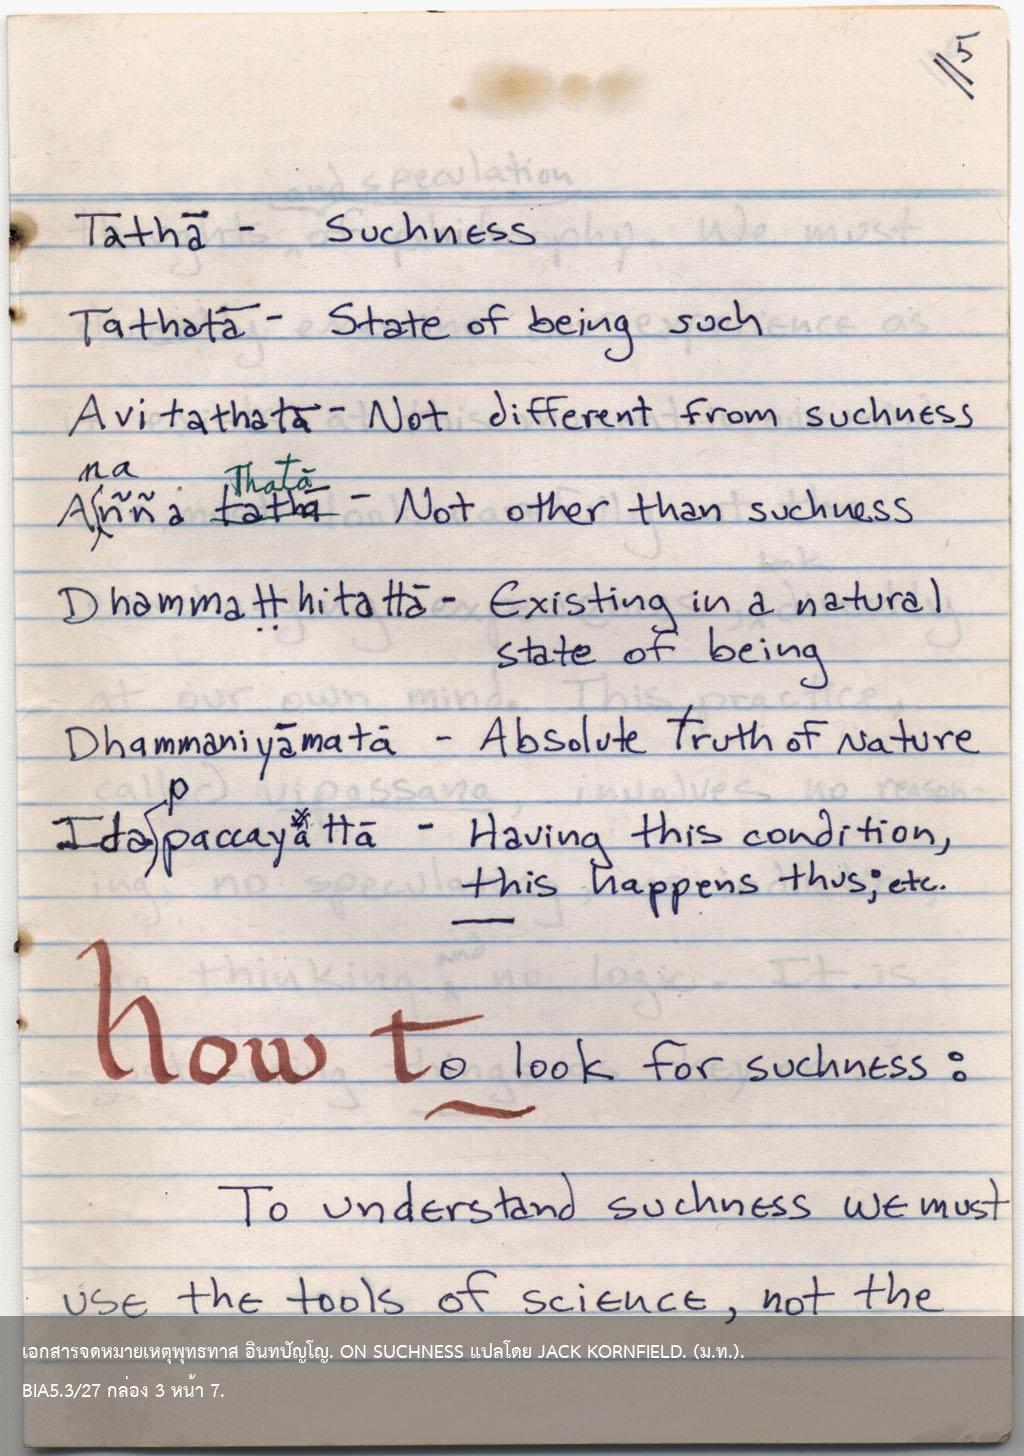 5
Tathā - Suchness
Tathatā - State of being such
Avitathatā - Not different from suchness
na Thatā
Añña tathā - Not other than suchness
Dhammaṭṭhitattā - Existing in a natural
state of being
Dhammaniyāmatā - Absolute Truth of Nature
p
Idapaccayāttā - Having this condition,
this happens thus; etc.
how to look for suchness:
To understand suchness we must
use the tools of science, not the
เอกสารจดหมายเหตุพุทธทาส อินทปัญโญ. ON SUCHNESS แปลโดย JACK KORNFIELD. (ม.ท.).
BIA5.3/27 กล่อง 3 หน้า 7.